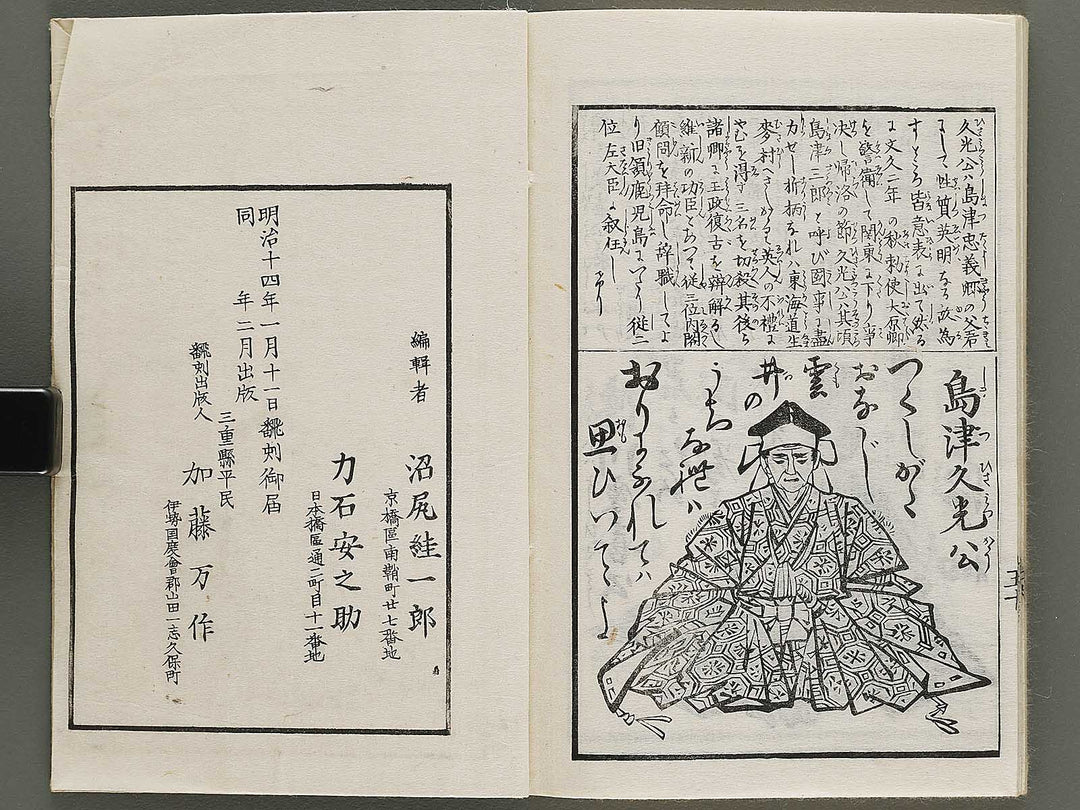 久光公ハ島津忠義卿の父君
にして性質英明なる故為
すところ皆意表に出て然る
に文久二年の秋勅使大原卿
を警衛して関東に下り事
決し帰洛の節久光公ハ其頃
島津三郎と呼び國事に盡
力せし折柄なれハ東海道生
麥村へさしかゝる英人の不禮に
やむを得ず三名を切殺其後ち
諸卿に王政復古を辨解るし
維新の功臣とちつて従三位内閣
顧問を拜命し辞職してよ
り旧領鹿児島にいたり従二
位左大臣に叙任し
たり
島津久光公
つくしがた
おなじ
雲
井の
うち
なれハ
おりに
ふれてハ
思ひいでよ
五十
編輯者
沼尻絓一郎
京橋區南鞘町廿七番地
力石安之助
日本橋區通二町目十一番地
明治十四年一月十一日飜刻御届
同年二月出版
三重縣平民
飜刻出版人
加藤万作
伊勢国度會郡山田一志久保町